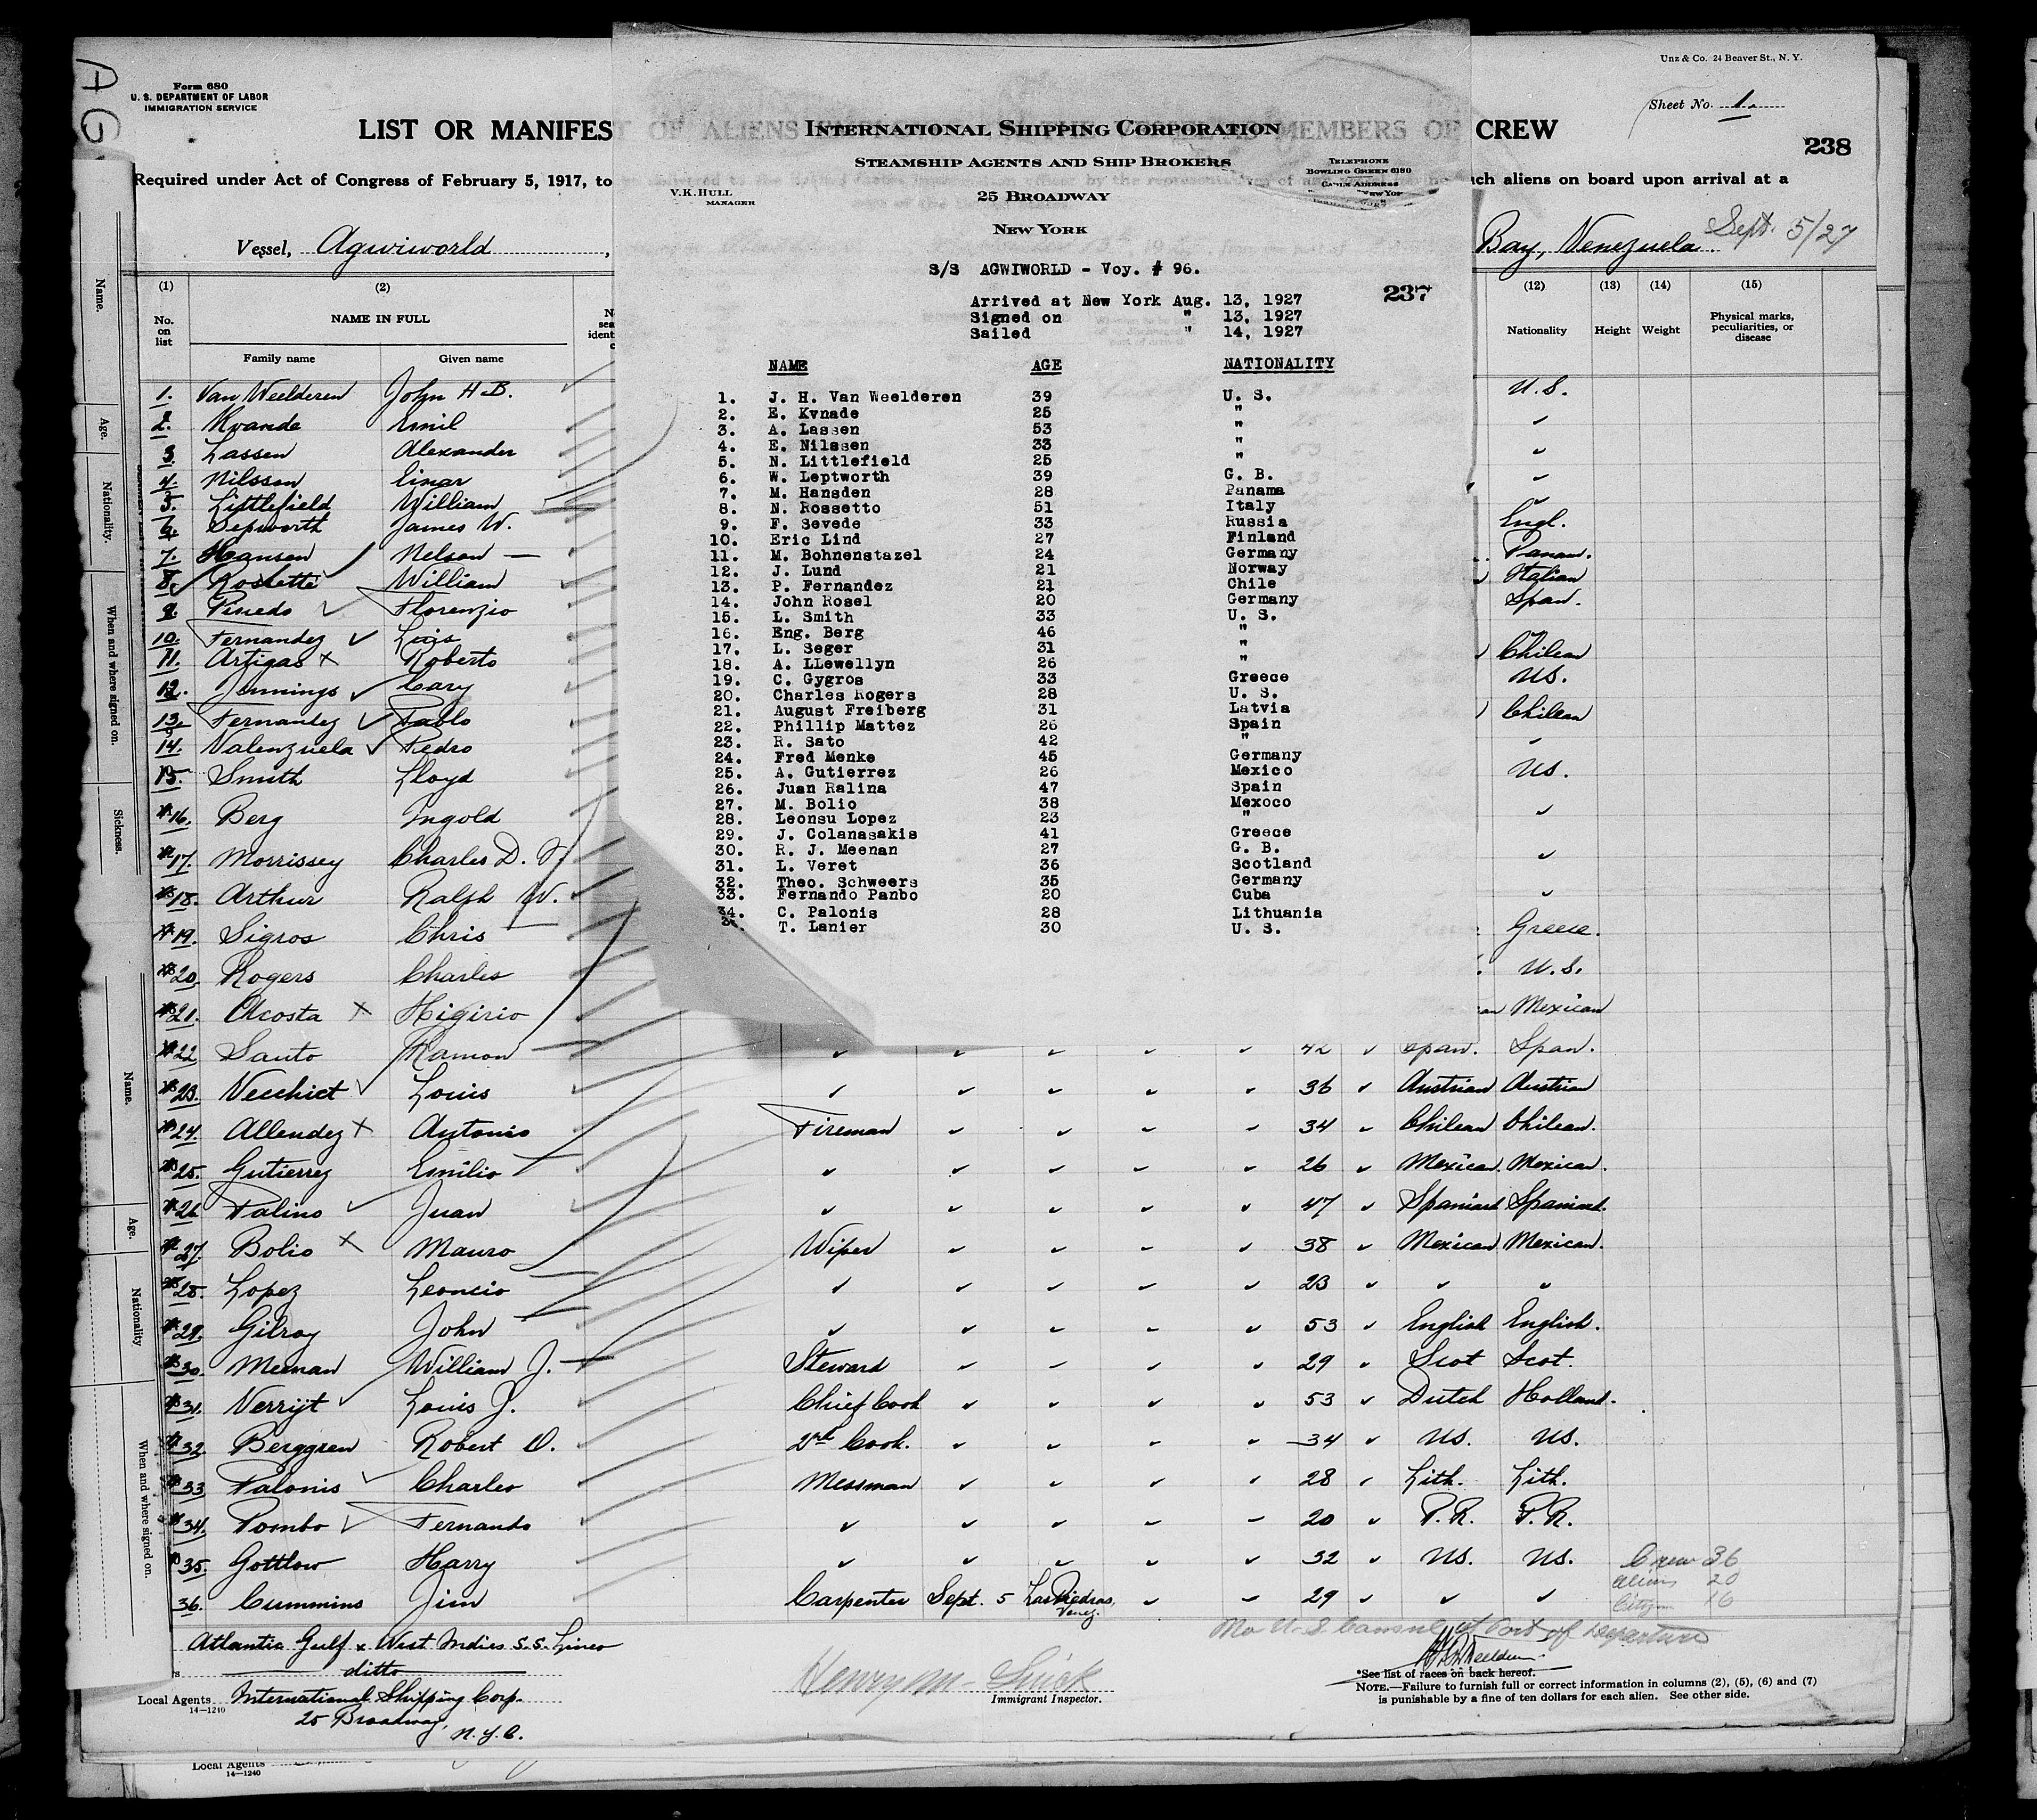 Unz & Co. 24 Beaver St., N. Y.
Form 680
U. S. DEPARTMENT OF LABOR
IMMIGRATION SERVICE
AG
Sheet No. 1.
LIST OR MANIFEST OF ALIENS MEMBERS OF CREW
238
Required under Act of Congress of February 5, 1917, to
such aliens on board upon arrival at a
Vessel, Agwiworld,
Bay, Venezuela Sept. 5/27
INTERNATIONAL SHIPPING CORPORATION
STEAMSHIP AGENTS AND SHIP BROKERS
TELEPHONE
BOWLING GREEN 6180
CABLE ADDRESS
V.K. HULL
MANAGER
25 BROADWAY
NEW YORK
S/S AGWIWORLD - Voy. # 96.
237
Arrived at New York Aug. 13, 1927
Signed on " 13, 1927
Sailed " 14, 1927
NAME AGE NATIONALITY
1. J. H. Van Weelderen 39 U. S.
2. E. Kvnade 25 "
3. A. Lassen 53 "
4. E. Nilssen 33 "
5. N. Littlefield 25 "
6. W. Leptworth 39 G. B.
7. M. Hansden 28 Panama
8. N. Rossetto 51 Italy
9. F. Sevede 33 Russia
10. Eric Lind 27 Finland
11. M. Bohnenstazel 24 Germany
12. J. Lund 21 Norway
13. P. Fernandez 21 Chile
14. John Rosel 20 Germany
15. L. Smith 33 U. S.
16. Eng. Berg 46 "
17. L. Seger 31 "
18. A. LLewellyn 26 "
19. C. Gygros 33 Greece
20. Charles Rogers 28 U. S.
21. August Freiberg 31 Latvia
22. Phillip Mattez 26 Spain
23. R. Sato 42 "
24. Fred Menke 45 Germany
25. A. Gutierrez 26 Mexico
26. Juan Ralina 47 Spain
27. M. Bolio 38 Mexoco
28. Leonsu Lopez 23 "
29. J. Colanasakis 41 Greece
30. R. J. Meenan 27 G. B.
31. L. Veret 36 Scotland
32. Theo. Schweers 35 Germany
33. Fernando Panbo 20 Cuba
34. C. Palonis 28 Lithuania
T. Lanier 30 U. S.
(1) (2) (12) (13) (14) (15)
No. on list
NAME IN FULL
Family name Given name
Nationality Height Weight Physical marks, peculiarities, or disease
1. Van Weelderen John H.B. U.S.
2. Kvande Emil "
3. Lassen Alexander "
4. Nilsson Einar "
5. Littlefield William "
6. Sepworth James W. Engl.
7. Hansen Nelson — Panam.
8. Rossette William Italian
9. Pinedo Florenzio Span.
10. Fernandez Luis
11. Artigas x Roberto Chilean
12. Jennings Cary US.
13. Fernandez Pablo Chilean
14. Valenzuela Pedro "
15. Smith Lloyd US.
16. Berg Ingold "
17. Morrissey Charles D. F. "
18. Arthur Ralph W. "
19. Sigros Chris Greese.
20. Rogers Charles U.S.
21. Acosta x Higirio Mexican
22. Santo Ramon " " " " " 42 " Span. Span.
23. Vecchict Louis " " " " " 36 " Austrian Austrian
24. Allendez x Antonio Fireman " " " " 34 " Chilean Chilean.
25. Gutierrez Emilio " " " " " 26 " Mexican. Mexican.
26. Palino Juan " " " " " 47 " Spaniard Spaniard.
27. Bolio x Mauro Wiper " " " " 38 " Mexican Mexican.
28. Lopez Leoncio " " " " " 23 " " "
29. Gilroy John " " " " " 53 " English English.
30. Meenan William J. Steward " " " " 29 " Scot Scot.
31. Verrijt Louis J. Chief Cook " " " " 53 " Dutch Holland.
32. Berggren Robert O. 2nd Cook. " " " " 34 " US. US.
33. Palonis Charles Messman " " " " 28 " Lith. Lith.
34. Pombo Fernando " " " " " 20 " P.R. P.R.
35. Gottlow Harry " " " " " 32 " US. US.
36. Cummins Jim Carpenter Sept. 5 Las Piedras, Venez. " " 29 " " "
Crew 36
Aliens 20
Citizen 16
No U.S. Consul at Port of Departure
Atlantic Gulf & West Indies S.S. Lines
ditto
Local Agents International Shipping Corp.
14—1240
25 Broadway, N.Y.C.
Immigrant Inspector.
*See list of races on back hereof.
NOTE.—Failure to furnish full or correct information in columns (2), (5), (6) and (7)
is punishable by a fine of ten dollars for each alien. See other side.
Local Agents
14—1240
Name.
Age.
Nationality.
When and where signed on.
Sickness.
Name.
Age.
Nationality
When and where signed on.